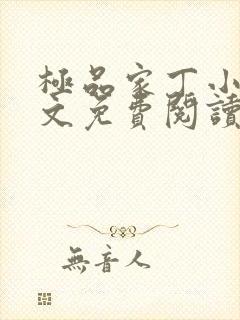 極品家丁小
文免費閱讀
無音人